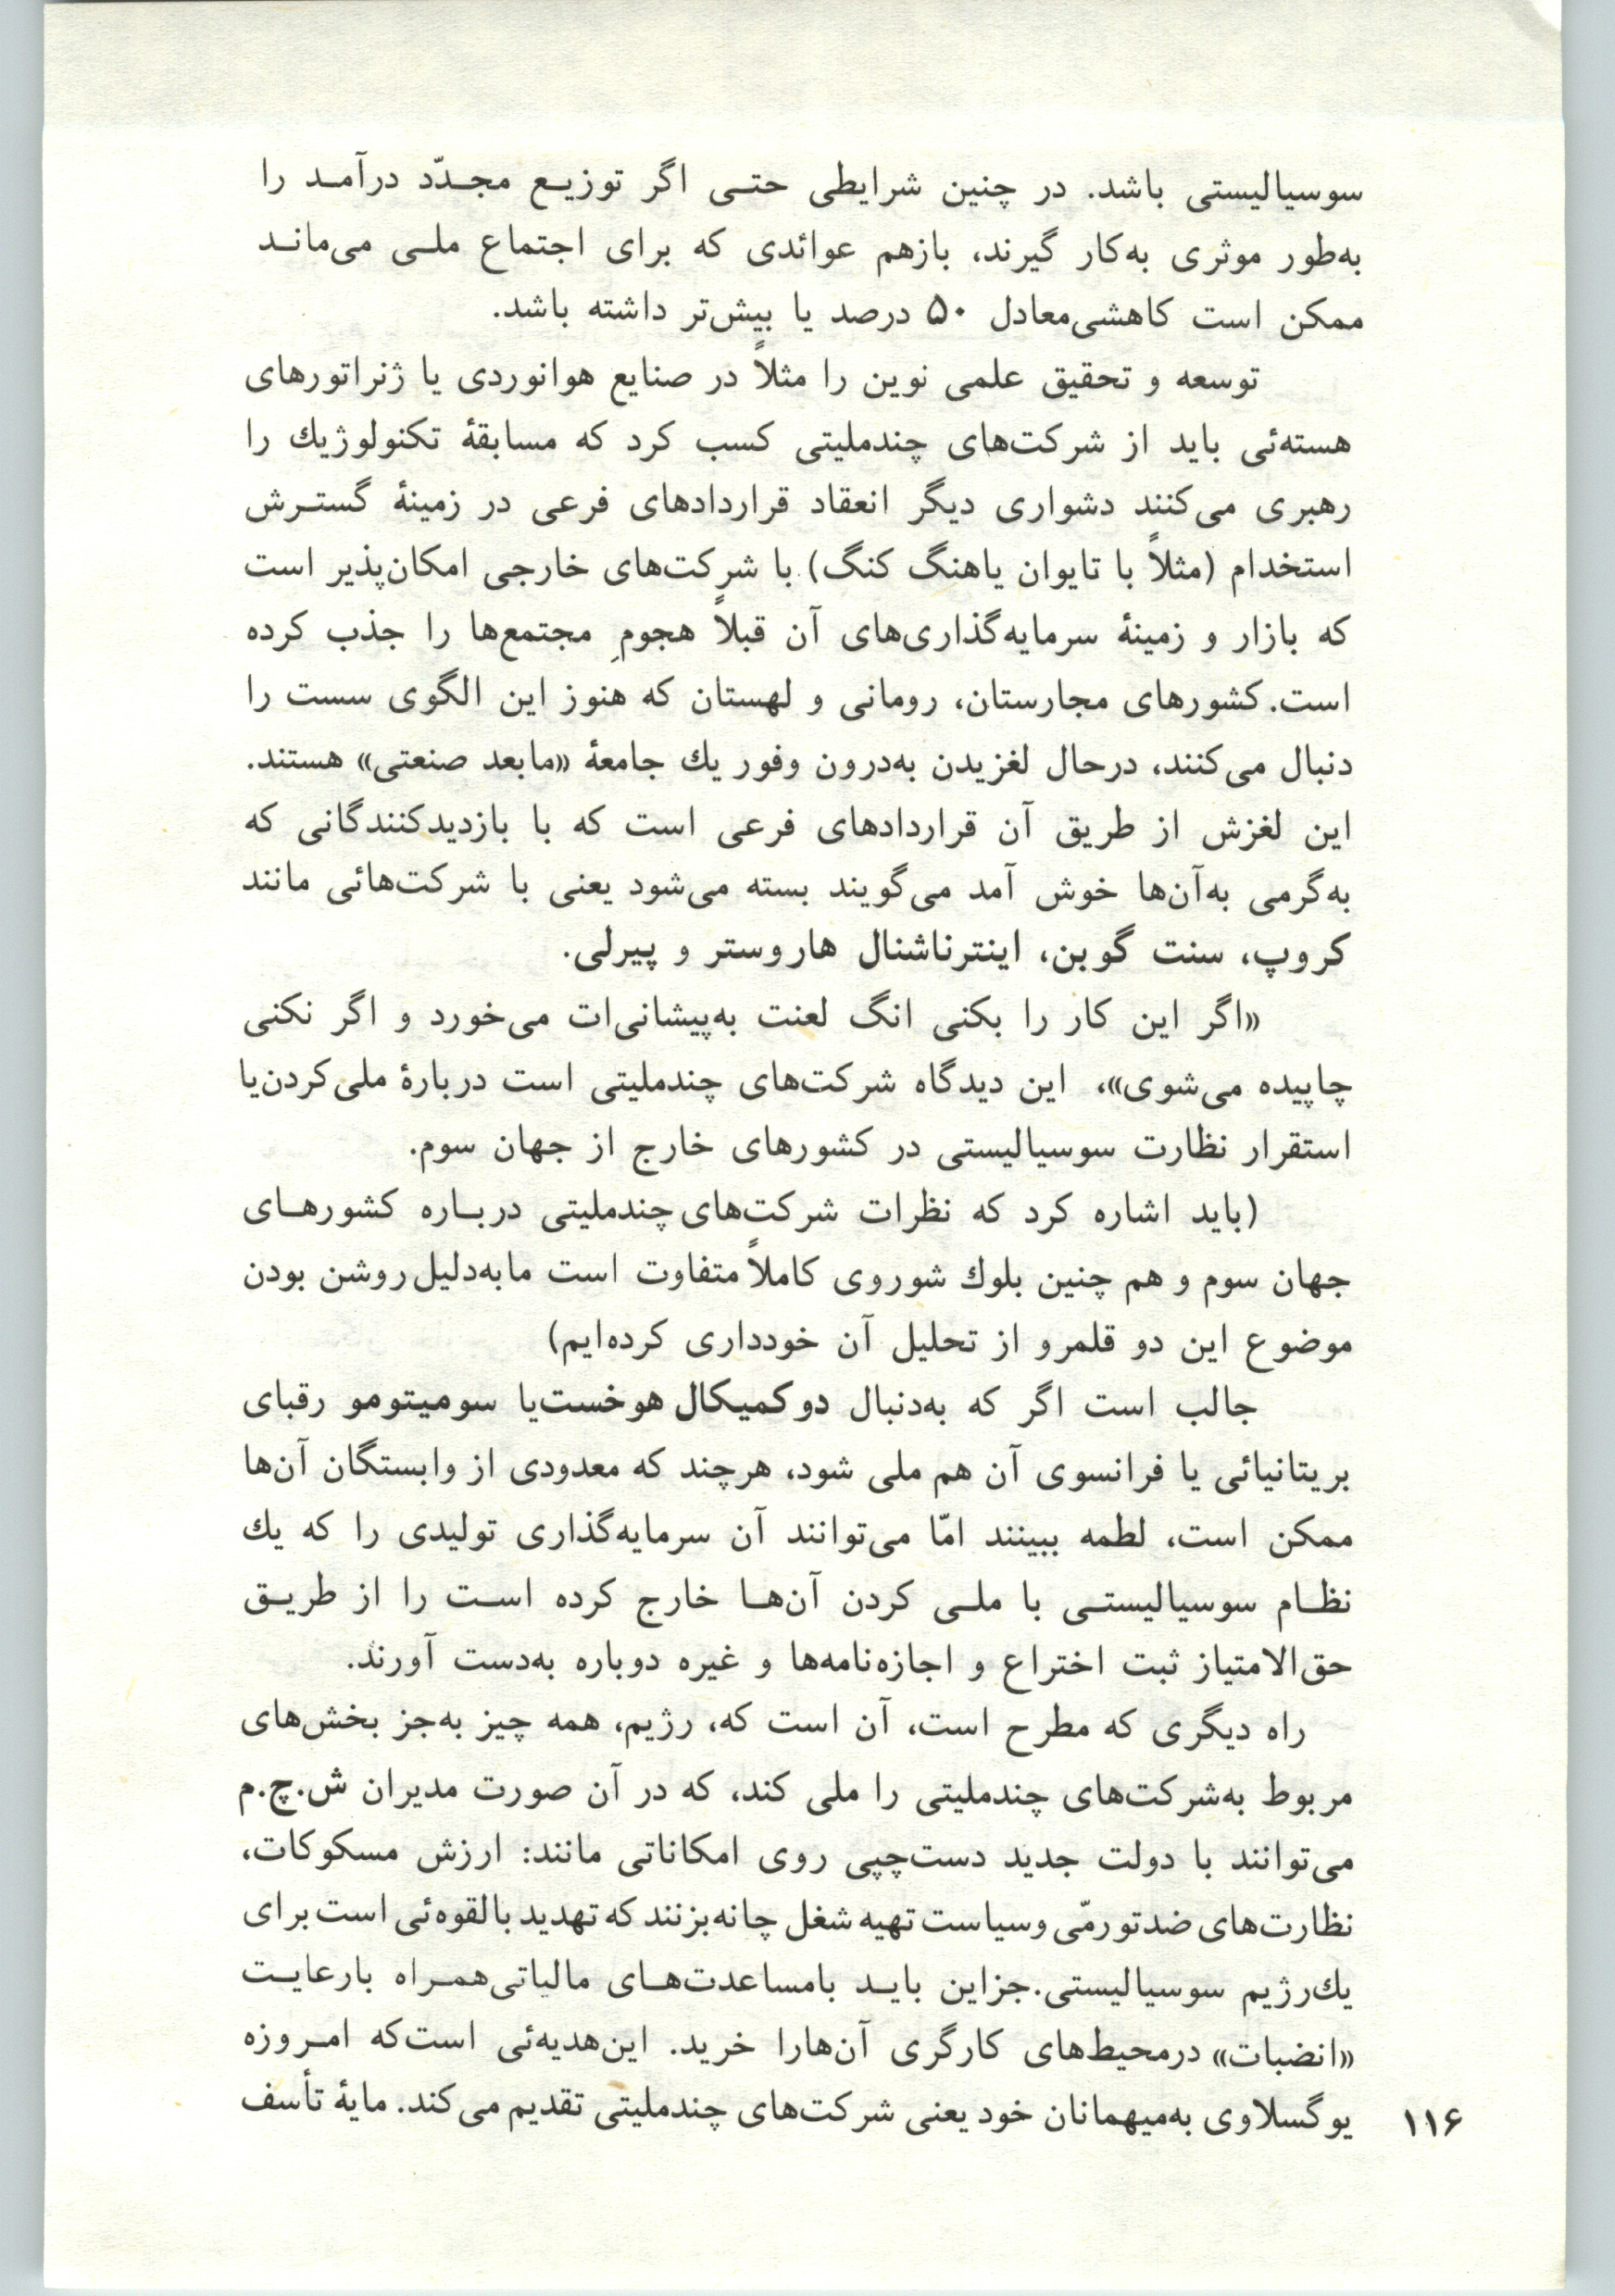 سوسیالیستی باشد. در چنین شرایطی حتی اگر توزیع مجدّد درآمد را
به‌طور موثری به‌کار گیرند، بازهم عوائدی که برای اجتماع ملی می‌ماند
ممکن است کاهشی‌معادل ۵۰ درصد یا بیش‌تر داشته باشد.
توسعه و تحقیق علمی نوین را مثلاً در صنایع هوانوردی یا ژنراتورهای
هسته‌ئی باید از شرکت‌های چندملیتی کسب کرد که مسابقهٔ تکنولوژیك را
رهبری می‌کنند دشواری دیگر انعقاد قراردادهای فرعی در زمینهٔ گسترش
استخدام (مثلاً با تایوان یاهنگ کنگ) با شرکت‌های خارجی امکان‌پذیر است
که بازار و زمینهٔ سرمایه‌گذاری‌های آن قبلاً هجومِ مجتمع‌ها را جذب کرده
است. کشورهای مجارستان، رومانی و لهستان که هنوز این الگوی سست را
دنبال می‌کنند، درحال لغزیدن به‌درون وفور یك جامعهٔ «مابعد صنعتی» هستند.
این لغزش از طریق آن قراردادهای فرعی است که با بازدیدکنندگانی که
به‌گرمی به‌آن‌ها خوش آمد می‌گویند بسته می‌شود یعنی با شرکت‌هائی مانند
کروپ، سنت گوبن، اینترناشنال هاروستر و پیرلی.
«اگر این کار را بکنی انگ لعنت به‌پیشانی‌ات می‌خورد و اگر نکنی
چاپیده می‌شوی»، این دیدگاه شرکت‌های چندملیتی است دربارهٔ ملی‌کردن‌یا
استقرار نظارت سوسیالیستی در کشورهای خارج از جهان سوم.
(باید اشاره کرد که نظرات شرکت‌های چندملیتی درباره کشورهای
جهان سوم و هم چنین بلوك شوروی کاملاً متفاوت است مابه‌دلیل روشن بودن
موضوع این دو قلمرو از تحلیل آن خودداری کرده‌ایم)
جالب است اگر که به‌دنبال دوکمیکال هوخست‌یا سومیتومو رقبای
بریتانیائی یا فرانسوی آن هم ملی شود، هرچند که معدودی از وابستگان آن‌ها
ممکن است، لطمه ببینند امّا می‌توانند آن سرمایه‌گذاری تولیدی را که یك
نظام سوسیالیستی با ملی کردن آن‌ها خارج کرده است را از طریق
حق‌الامتیاز ثبت اختراع و اجازه‌نامه‌ها و غیره دوباره به‌دست آورند.
راه دیگری که مطرح است، آن است که، رژیم، همه چیز به‌جز بخش‌های
مربوط به‌شرکت‌های چندملیتی را ملی کند، که در آن صورت مدیران ش.چ.م
می‌توانند با دولت جدید دست‌چپی روی امکاناتی مانند: ارزش مسکوکات،
نظارت‌های ضدتورمّی وسیاست تهیه شغل چانه‌بزنند که تهدید بالقوه‌ئی است برای
یك‌رژیم سوسیالیستی.جزاین باید بامساعدت‌های مالیاتی‌همراه بارعایت
«انضبات» درمحیط‌های کارگری آن‌هارا خرید. این‌هدیه‌ئی است‌که امروزه
یوگسلاوی به‌میهمانان خود یعنی شرکت‌های چندملیتی تقدیم می‌کند. مایهٔ تأسف
۱۱۶